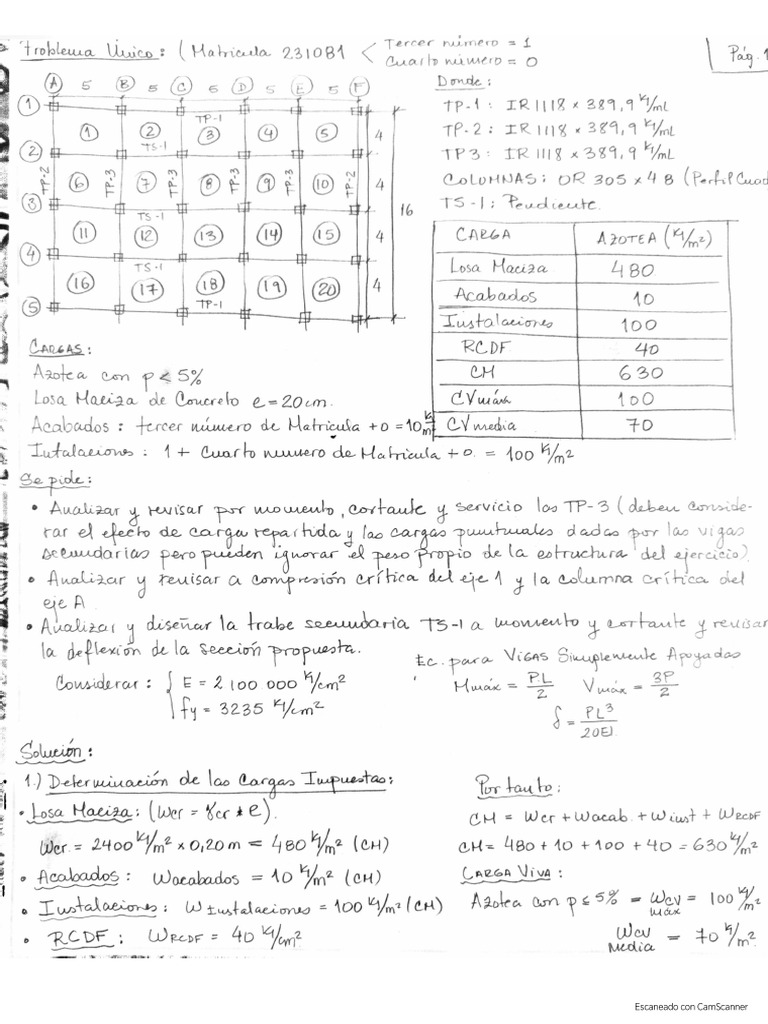 Problema Único: ( Matricula 231081 < Tercer número = 1
Cuarto número = 0
Pág. 1
A 5 B 5 C 5 D 5 E 5 F
1
TP-1
1 2 3 4 5 4
TS-1
2
TP-2 TP-3 TP-3 TP-3 TP-3 TP-2
6 7 8 9 10 4
3 16
TS-1
11 12 13 14 15 4
4
TS-1
16 17 18 19 20 4
TP-1
5
Donde:
TP-1: IR 1118 x 389,9 kg/mL
TP-2: IR 1118 x 389,9 kg/mL
TP3: IR 1118 x 389,9 kg/mL
COLUMNAS: OR 305 x 48 (Perfil Cuad
TS-1: Pendiente.
CARGA AZOTEA (kg/m²)
Losa Maciza 480
Acabados 10
Instalaciones 100
RCDF 40
CM 630
CVmáx 100
CVmedia 70
CARGAS:
Azotea con p ≤ 5%
Losa Maciza de Concreto e = 20cm.
Acabados: tercer número de Matricula + 0 = 10 kg/m²
Intalaciones: 1 + Cuarto numero de Matricula + 0. = 100 kg/m²
Se pide:
• Analizar y revisar por momento, cortante y servicio las TP-3 (deben conside-
rar el efecto de carga repartida y las cargas puntuales dadas por las vigas
secundarias pero pueden ignorar el peso propio de la estructura del ejercicio).
• Analizar y revisar a compresión crítica del eje 1 y la columna crítica del
eje A
• Analizar y diseñar la trabe secundaria TS-1 a momento y cortante y revisar
la deflexión de la sección propuesta.
Considerar: { E = 2 100 000 kg/cm²
fy = 3235 kg/cm²
Ec. para VIGAS Simplemente Apoyadas
Mmáx = P.L/2 Vmáx = 3P/2
δ = PL³/20EI
Solución:
1.) Determinación de las Cargas Impuestas:
• Losa Maciza: (Wcr = γcr * e).
Wcr = 2400 kg/m² x 0,20 m = 480 kg/m² (CM)
• Acabados: Wacabados = 10 kg/m² (CM)
• Instalaciones: W Instalaciones = 100 kg/m² (CM)
• RCDF: WRCDF = 40 kg/cm²
Por tanto:
CM = Wcr + Wacab. + Winst + WRCDF
CM = 480 + 10 + 100 + 40 = 630 kg/m²
CARGA VIVA:
Azotea con p ≤ 5% = Wcv máx = 100 kg/m²
Wcv Media = 70 kg/m².
Escaneado con CamScanner